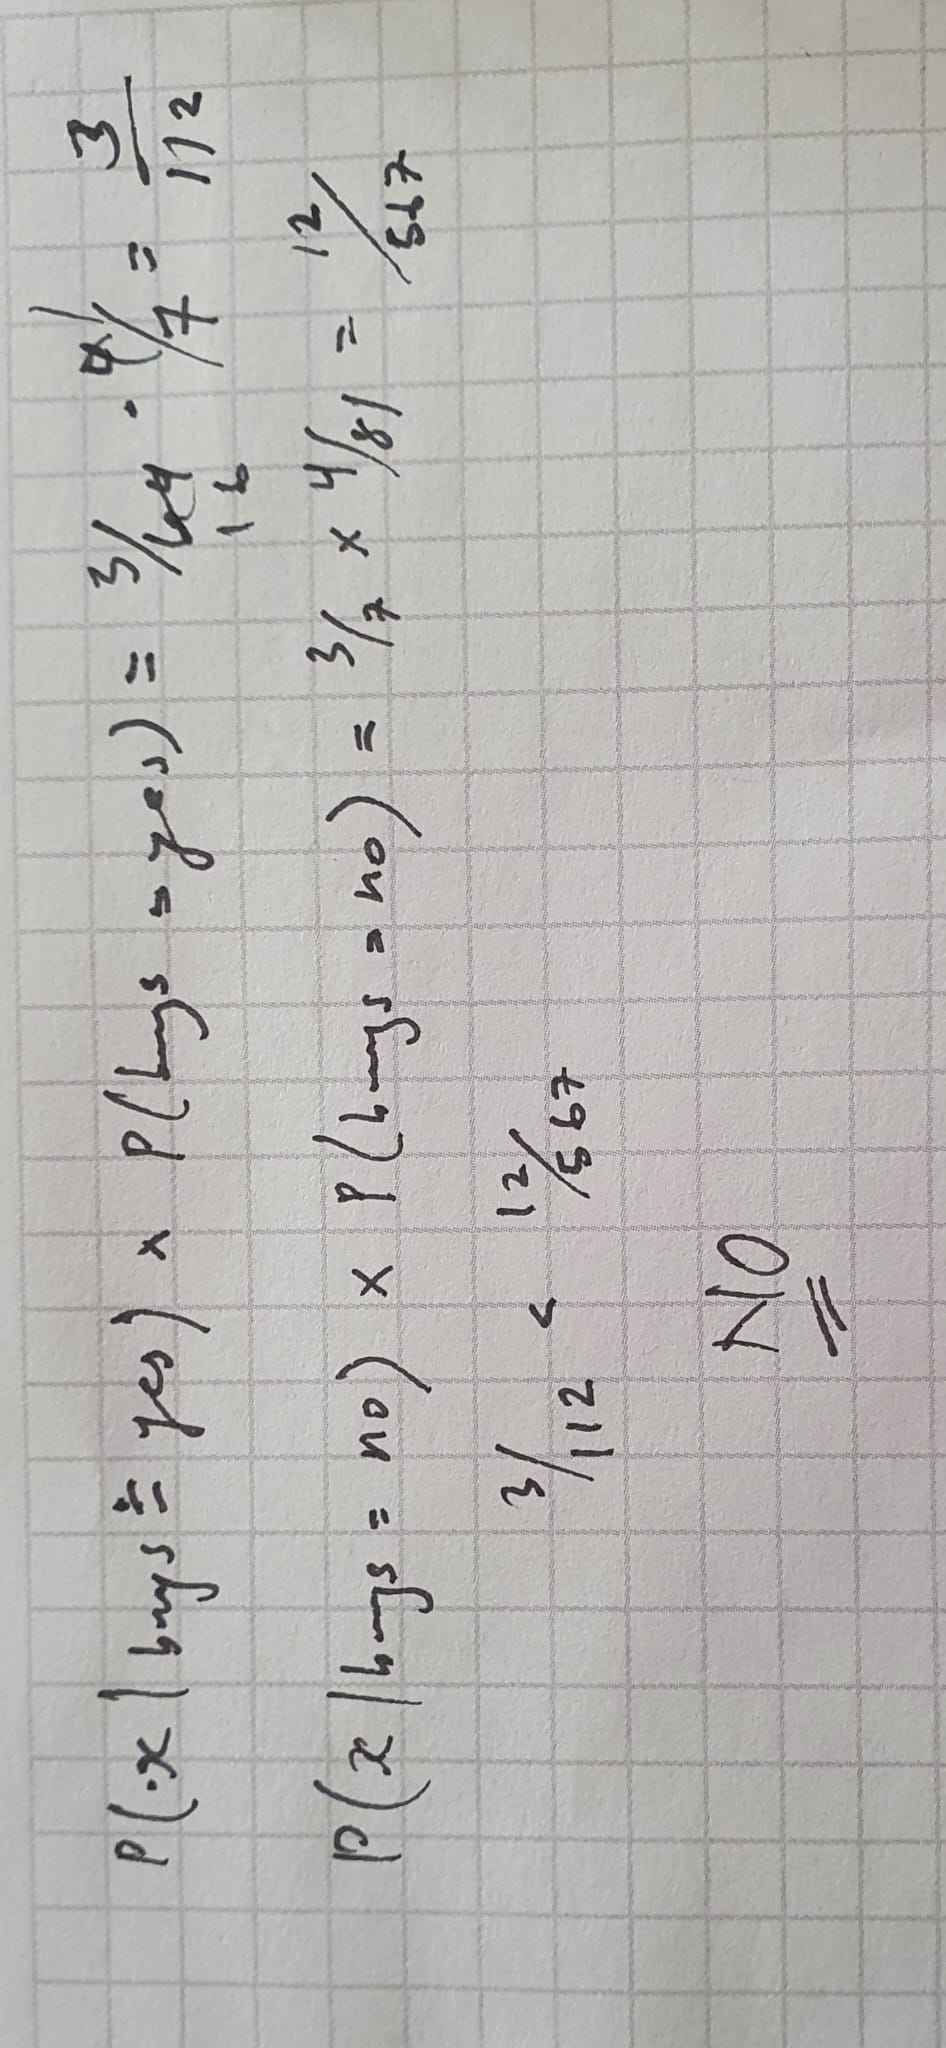 P(x | buys = yes) x P(buys = yes) = 3/64 16 · 4/7 = 3/112
P(x | buys = no) x P(buys = no) = 3/7 x 4/81 = 12/567
3/112 < 12/567
NO